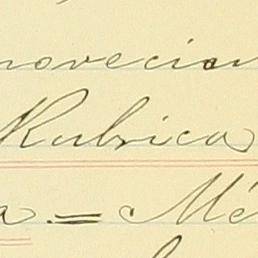 novecien
Rubrica
a.= Mé